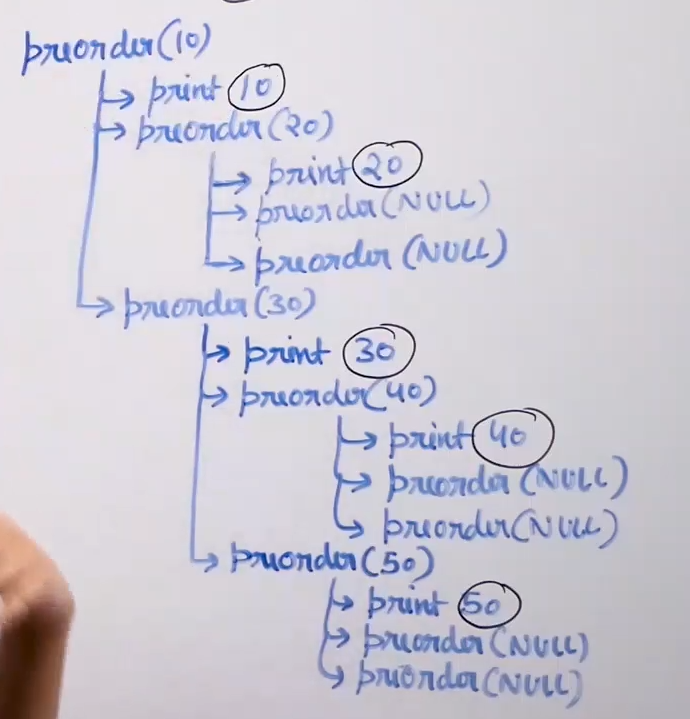 preorder(10)
print 10
preorder(20)
print 20
preorder(NULL)
preorder(NULL)
preorder(30)
print 30
preorder(40)
print 40
preorder(NULL)
preorder(NULL)
preorder(50)
print 50
preorder(NULL)
preorder(NULL)